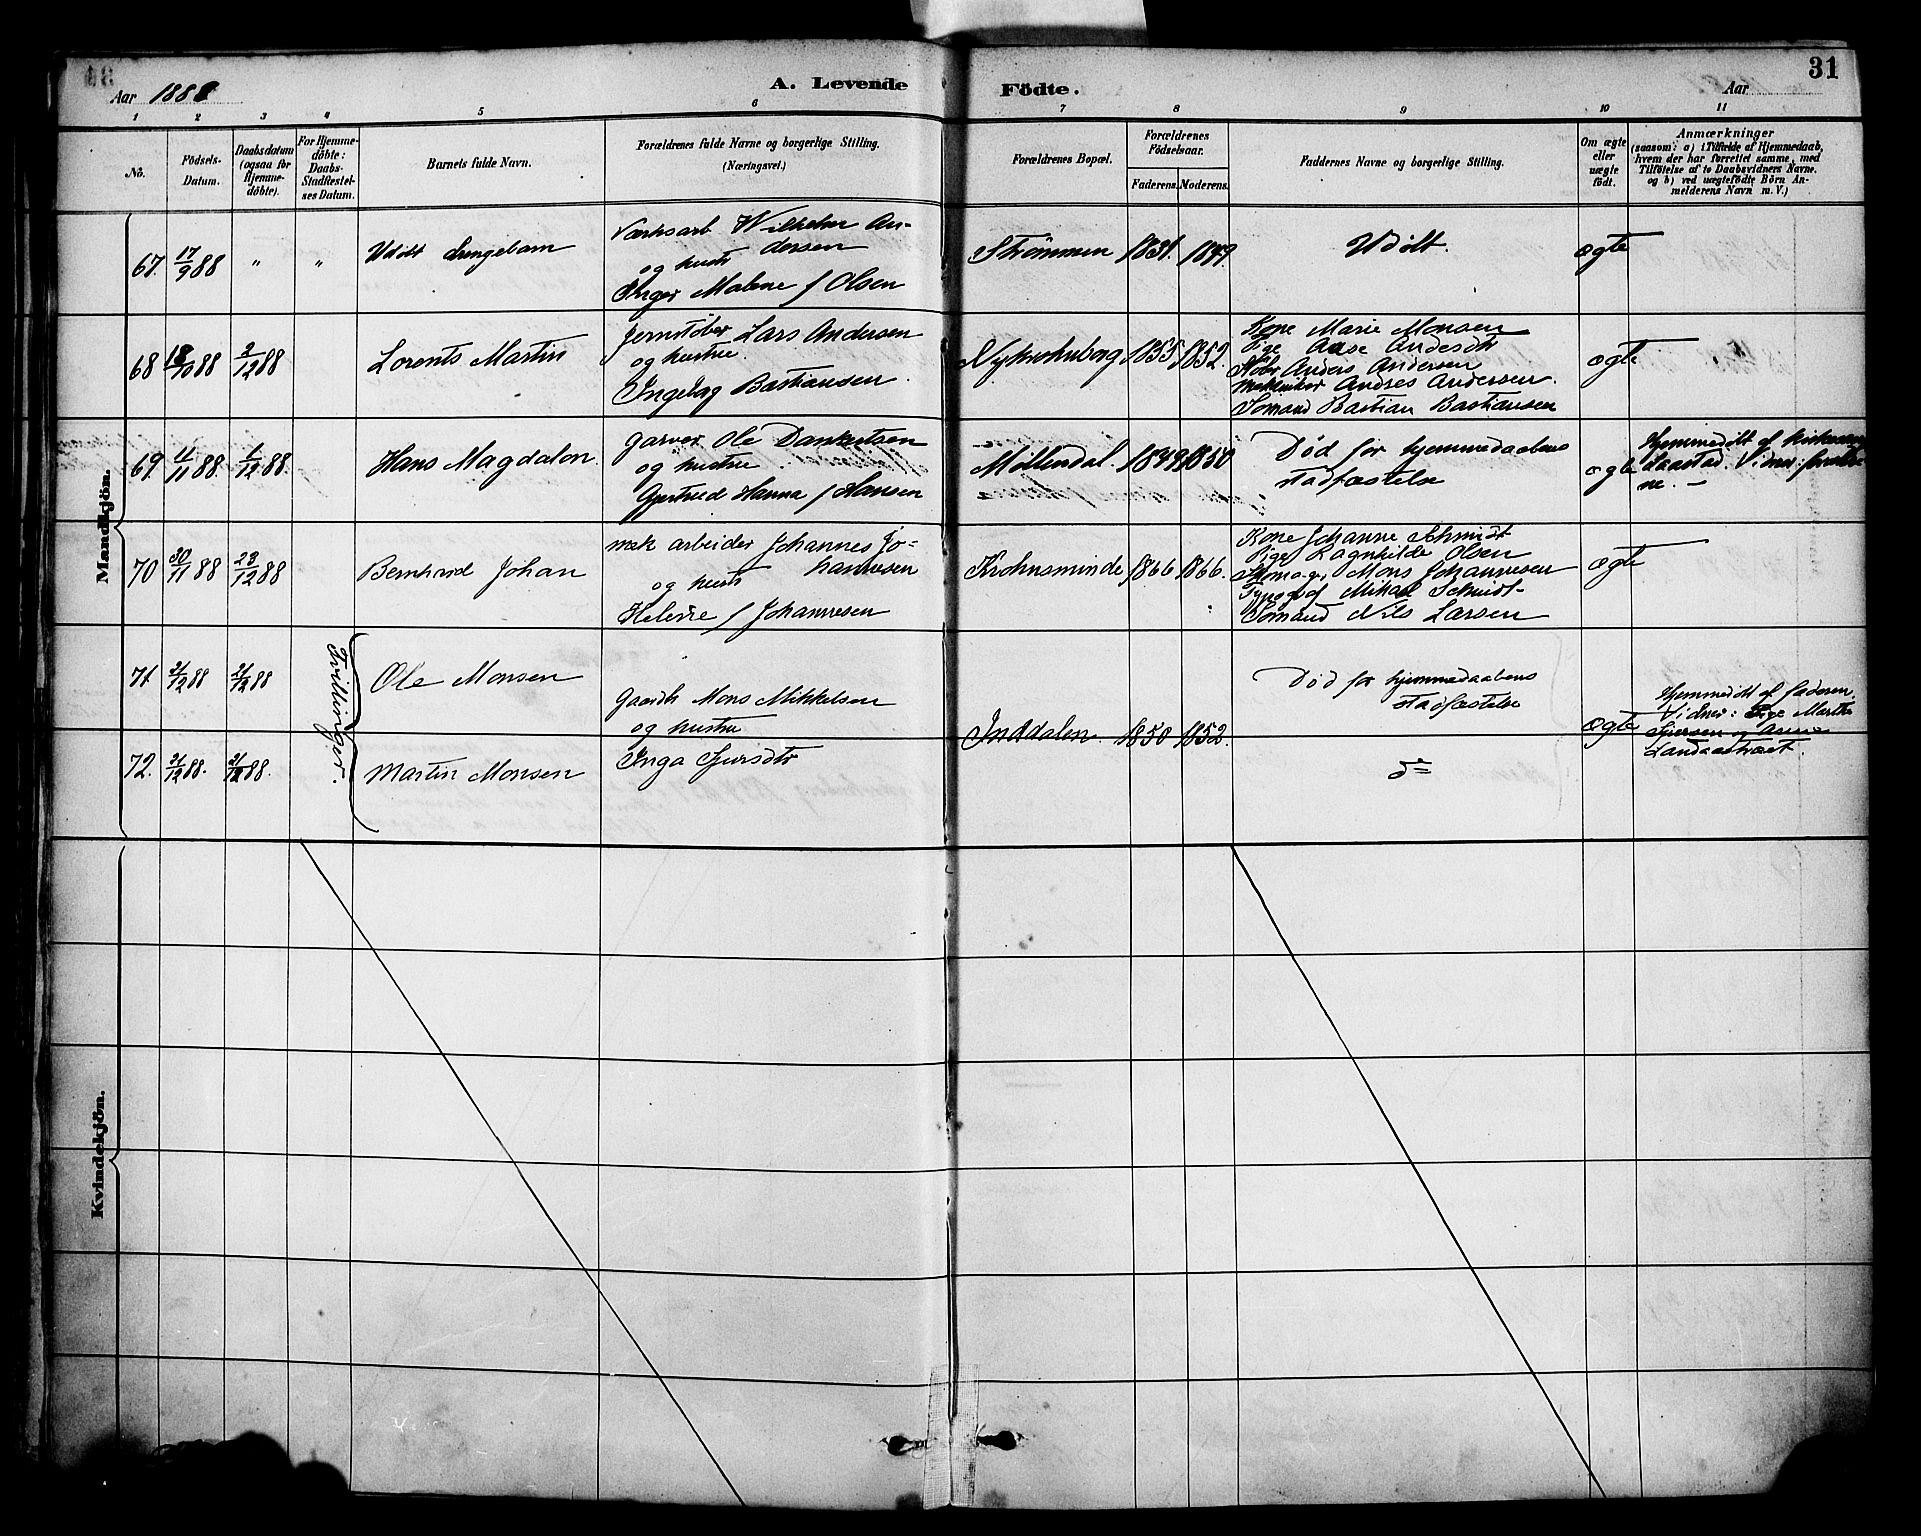 31
Aar 1888
A. Levende
Födte.
Aar
1 2 3 4 5 6 7 8 9 10 11
No.
Födsels-
Datum.
Daabsdatum
(ogsaa for
Hjemme-
döbte).
For Hjemme-
döbte:
Daabs-
Stadfæstel-
ses Datum.
Barnets fulde Navn.
Forældrenes fulde Navne og borgerlige Stilling.
(Næringsvei.)
Forældrenes Bopæl.
Forældrenes
Födselsaar.
Faderens. Moderens.
Faddernes Navne og borgerlige Stilling.
Om ægte
eller
uægte
födt.
Anmærkninger
(saasom: a) i Tilfælde af Hjemmedaab,
hvem der har forrettet samme, med
Tilföielse af to Daabsvidners Navne.
og b) ved uægtefödte Börn An-
melderens Navn m. V.)
Mandkjön.
67. 17/9 88 " " Udöbt Drengebarn
Værksarb Wilhelm An-
dersen
og hustr
Inger Malene f Olsen
Strömmen 1831. 1849. Udöbt. ægte
68 18/10 88 2/12 88 Lorents Martin
Jernstöber Lars Andersen
og hustru
Ingeborg Bastiansen.
Nykrohnborg 1855 1852.
Kone Marie Monsen
Pige Aase Andersdt
Stöber Anders Andersen
Mekaniker Andreas Andersen.
Sömand Bastian Bastiansen
ægte
69. 4/11 88. 1/12 88. Hans Magdalon.
Garver Ole Dankertsen
og hustru
Gjertrud Hanna f Hansen
Möllendal. 1849 1850
Död för hjemmedaabens
stadfæstelse
ægte
Hjemmedöbt af
Laastad. Vidner: forældre-
ne. —
70 30/11 88 23/12 88 Bernhard Johan
mek arbeider Johannes Jo-
hannesen
og hustr
Helene f Johannesen
Krohnsminde 1866 1866.
Kone Johanne Schmidt
Pige Ragnhilde Olsen
Skomager Mons Johannesen
Typograf Mikal Schmidt
Sömand Nils Larsen
ægte
Tvillinger.
71 21/12 88 21/12 88 Ole Monsen
Gaardb Mons Mikkelsen
og hustru
Inga Sjursdtr
Inddalen 1850 1852.
Död för hjemmedaabens
stadfæstelse
ægte
Hjemmedöbt af faderen.
Vidner: Pige Marthe
Sjursen og Anna
Landaastræet.
72. 21/12 88. 21/12 88. Martin Monsen
do
Kvindekjön.